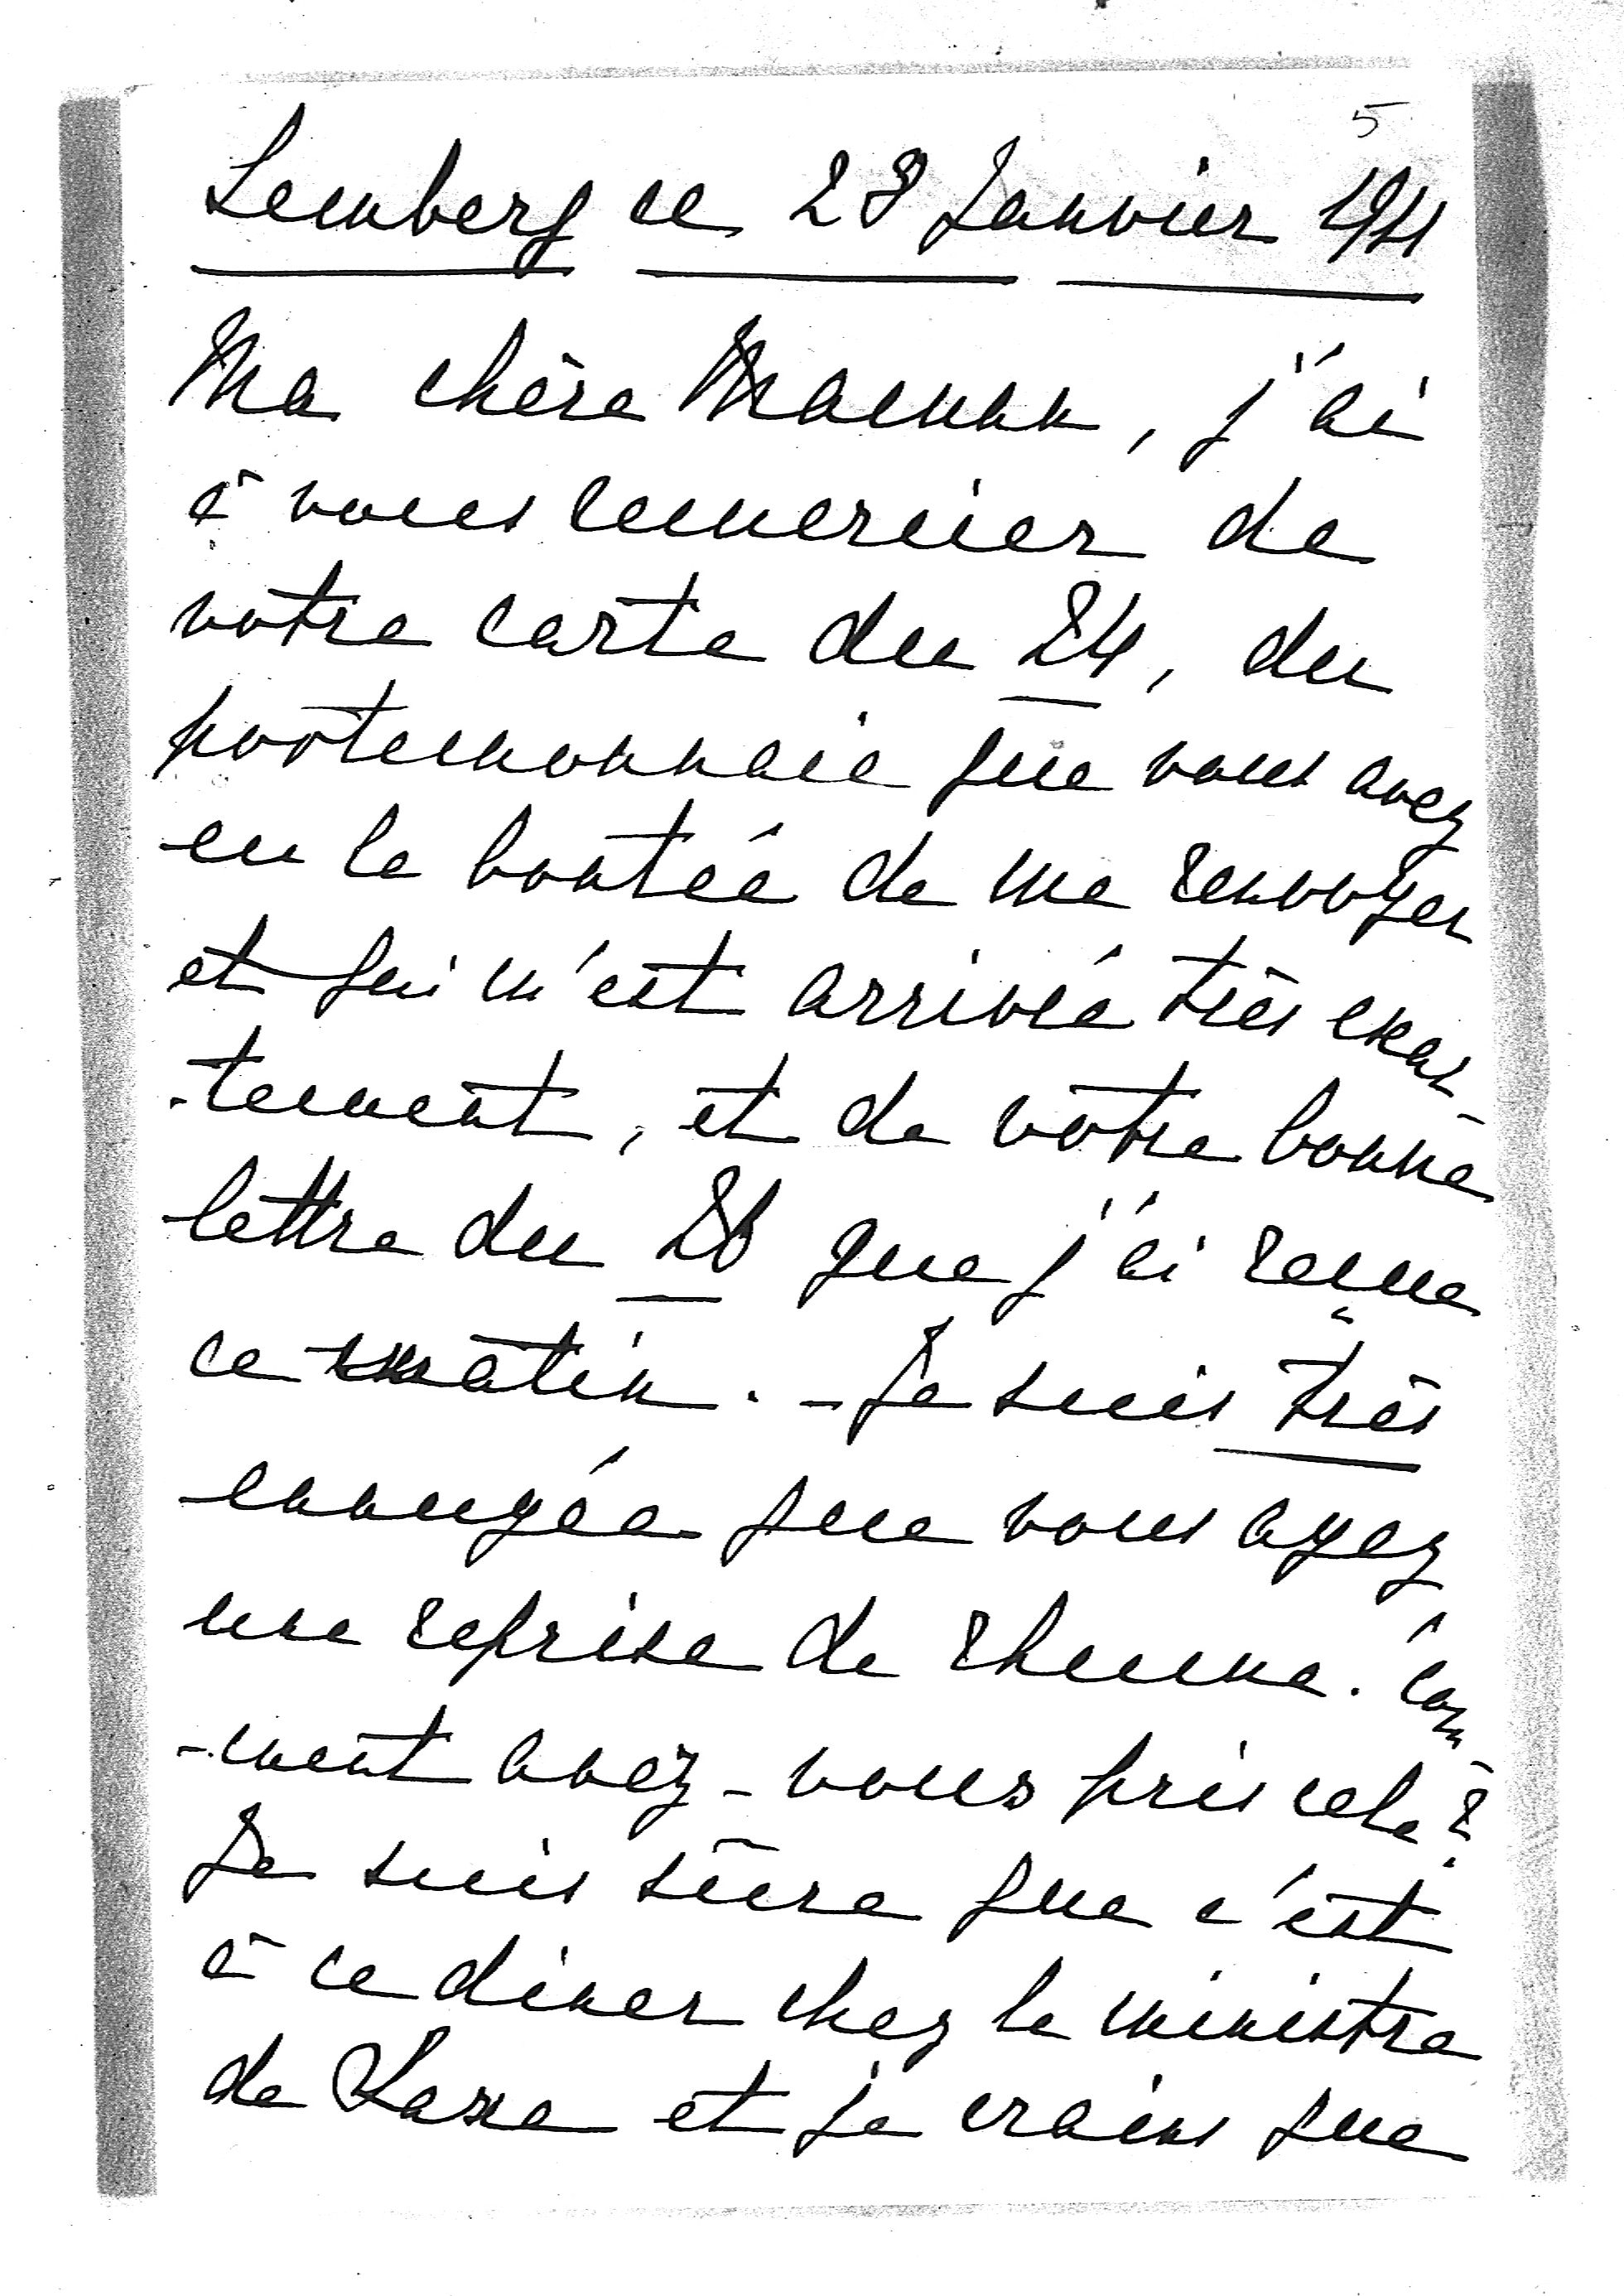 5
Lemberg ce 28 Janvier 1911
Ma chère Maman, j'ai
à vous remercier de
votre carte du 24, du
portemonnaie que vous avez
eu la bontée de me renvoyer
et qui m'est arrivée très exac-
-tement, et de votre bonne
lettre du 26 que j'ai reçue
ce matin. - Je suis très
ennuyée que vous ayez
une reprise de rhume. Com
-ment avez-vous pris cela?
Je suis sûre que c'est
à ce diner chez le ministre
de Saxe et je crains que